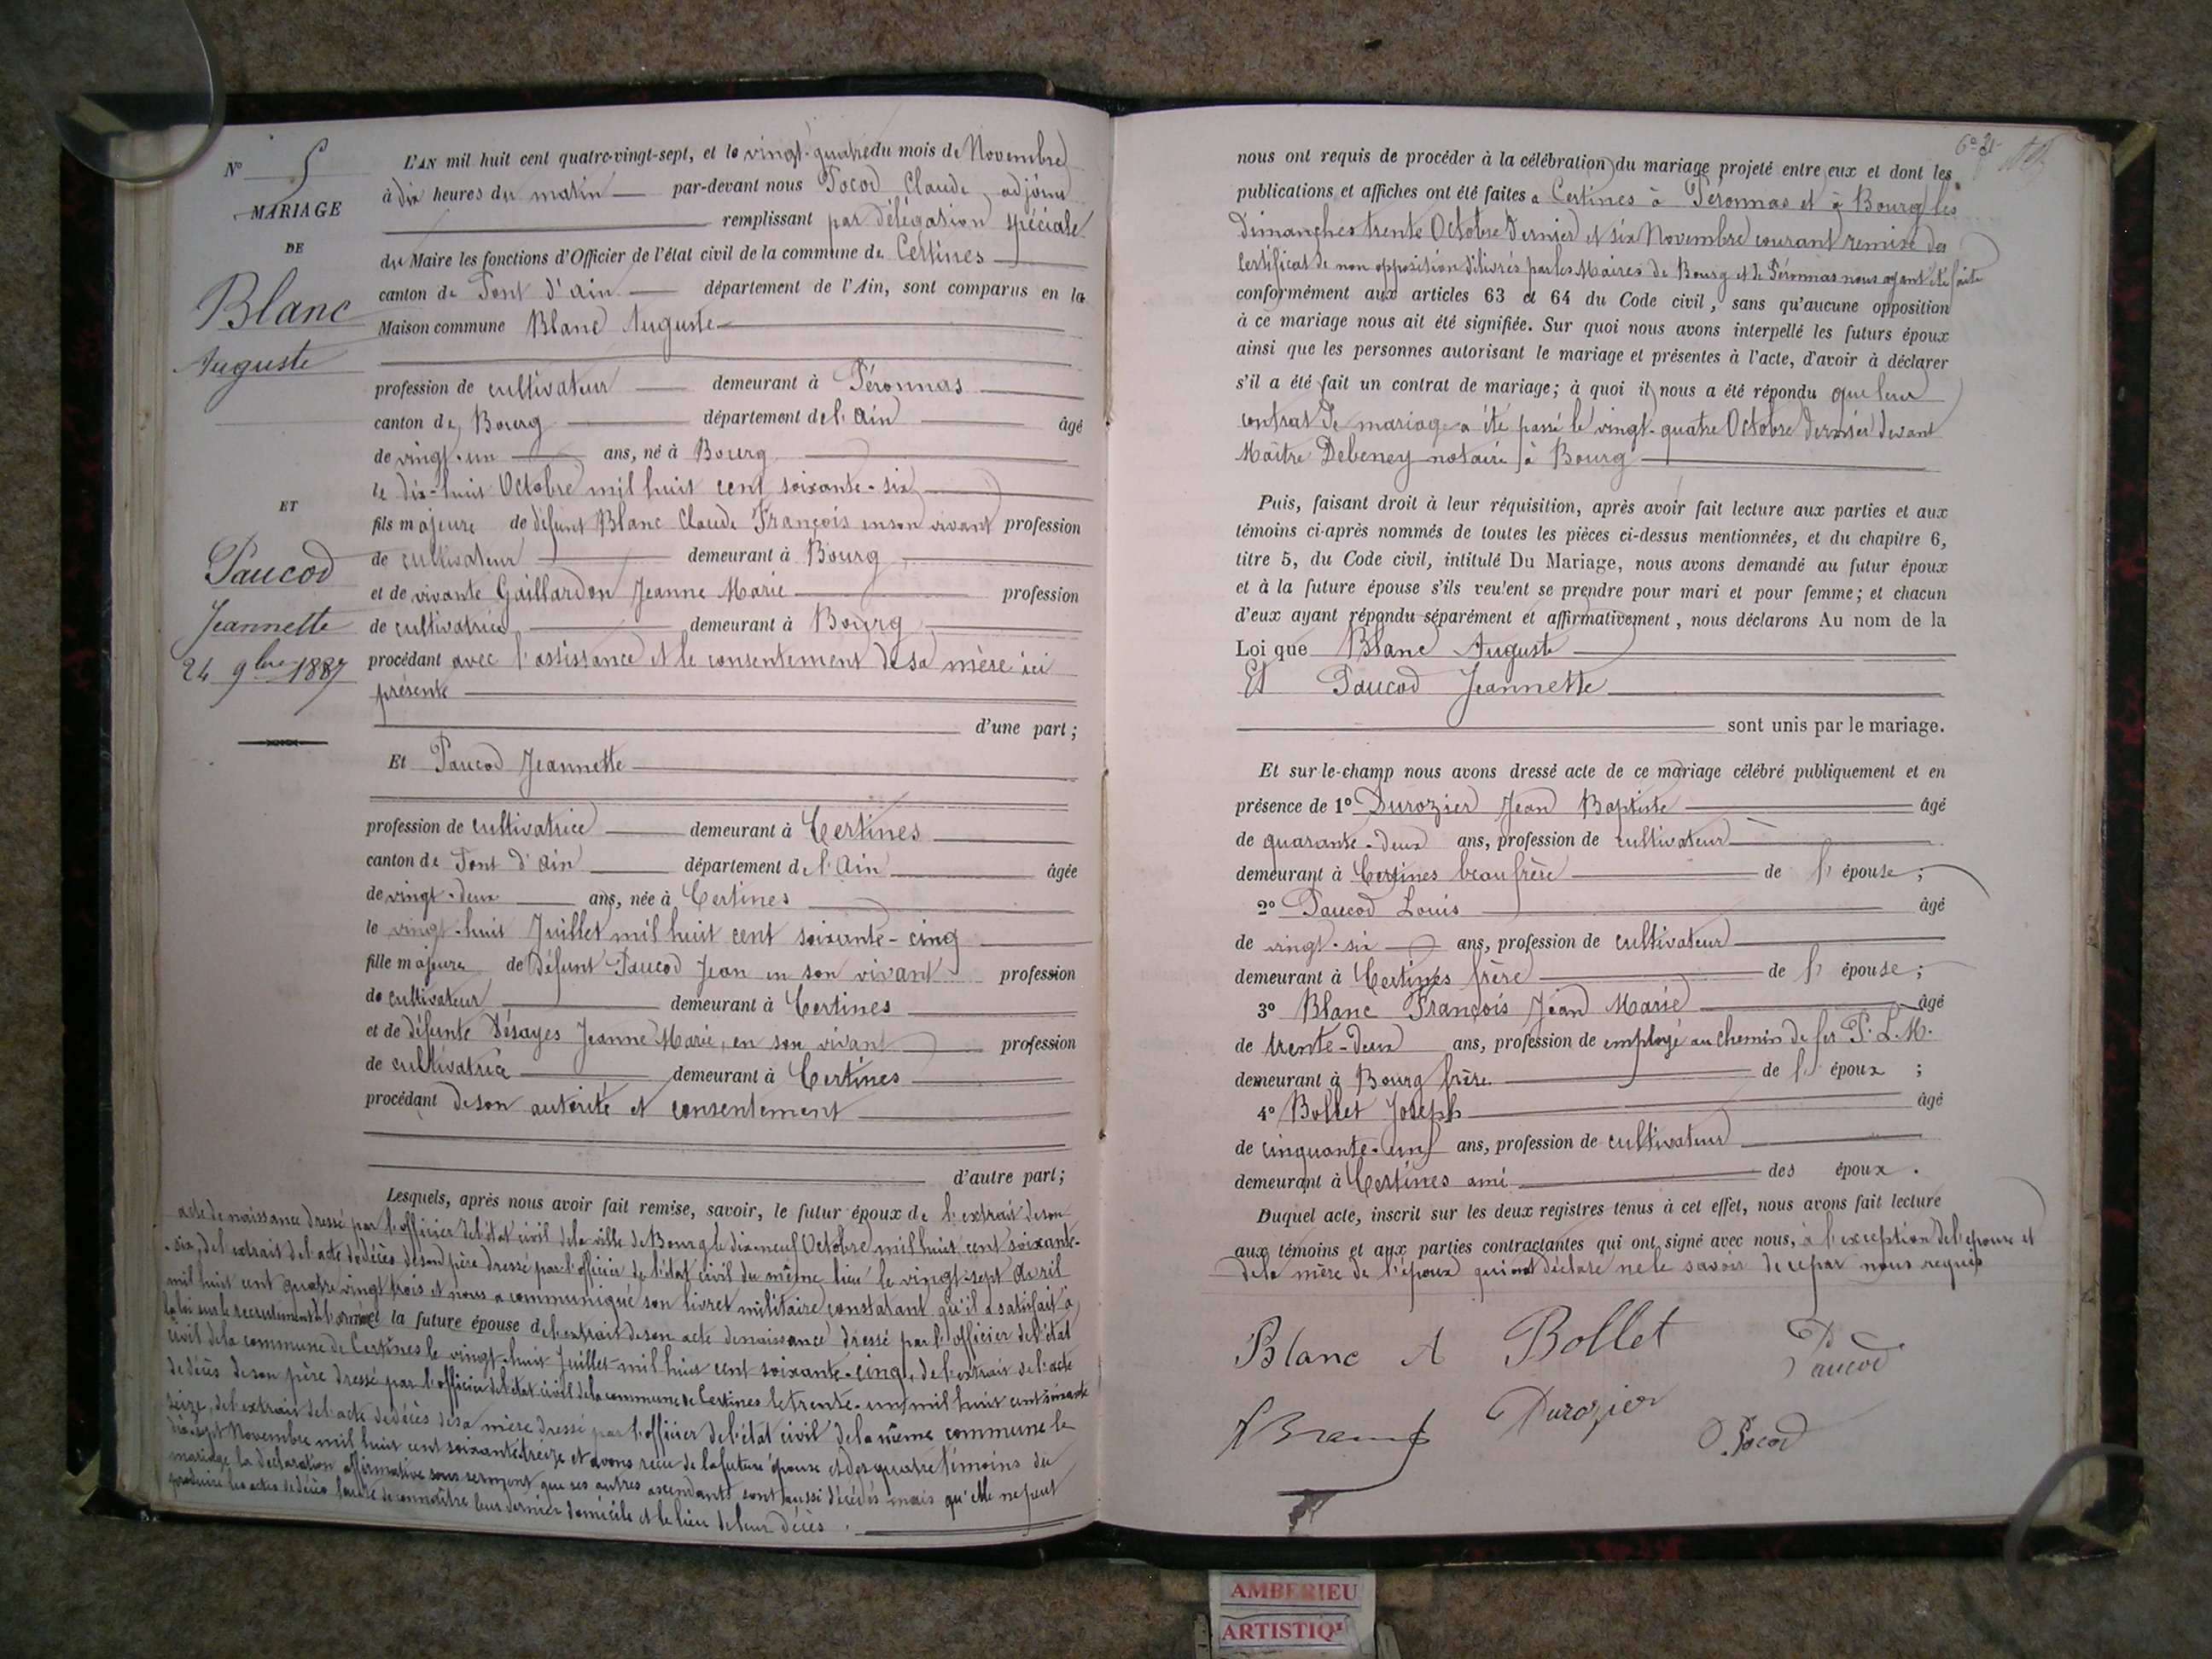 N° 5
MARIAGE
DE
Blanc
Auguste
ET
Paucod
Jeannette
24 9bre 1887
L'AN mil huit cent quatre-vingt-sept, et le vingt-quatre du mois de Novembre
à dix heures du matin par-devant nous Pocod Claude adjoint
remplissant par délégation spéciale
du Maire les fonctions d'Officier de l'état civil de la commune de Certines
canton de Pont d'ain département de l'Ain, sont comparus en la
Maison commune Blanc Auguste
profession de cultivateur demeurant à Péronnas
canton de Bourg département de l'ain âgé
de vingt-un ans, né à Bourg
le dix-huit Octobre mil huit cent soixante-six
fils majeure de défunt Blanc Claude François en son vivant profession
de cultivateur demeurant à Bourg
et de vivante Gaillardon Jeanne Marie profession
de cultivatrice demeurant à Bourg
procédant avec l'assistance et le consentement de sa mère ici
présente
d'une part;
Et Paucod Jeannette
profession de cultivatrice demeurant à Certines
canton de Pont d'ain département de l'Ain âgée
de vingt-deux ans, née à Certines
le vingt-huit Juillet mil huit cent soixante-cinq
fille majeure de défunt Paucod Jean en son vivant profession
de cultivateur demeurant à Certines
et de défunte Désayes Jeanne Marie, en son vivant profession
de cultivatrice demeurant à Certines
procédant de son autorité et consentement
d'autre part;
Lesquels, après nous avoir fait remise, savoir, le futur époux de l'extrait de son
acte de naissance dressé par l'officier de l'état civil de la ville de Bourg le dix-neuf Octobre mil huit cent soixante-
six, de l'extrait de l'acte de décès de son père dressé par l'officier de l'état civil du même lieu le vingt-sept avril
mil huit cent quatre vingt trois et nous a communiqué son livret militaire constatant qu'il a satisfait à
la loi sur le recrutement de l'armée et la future épouse de l'extrait de son acte de naissance dressé par l'officier de l'état
civil de la commune de Certines le vingt-huit Juillet mil huit cent soixante-cinq, de l'extrait de l'acte
de décès de son père dressé par l'officier de l'état civil de la commune de Certines le trente-un mil huit cent soixante
seize, de l'extrait de l'acte de décès de sa mère dressé par l'officier de l'état civil de la même commune le
dix-sept Novembre mil huit cent soixante treize et avons reçu de la future épouse et des quatre témoins du
mariage la déclaration affirmative sous serment que ses autres ascendants sont aussi décédés mais qu'elle ne peut
produire les actes de décès faute de connaître leur dernier domicile et le lieu de leur décès.
nous ont requis de procéder à la célébration du mariage projeté entre eux et dont les
publications et affiches ont été faites à Certines à Péronnas et à Bourg les
dimanches trente Octobre dernier et six Novembre courant remise des
certificat de non opposition délivrés par les Maires de Bourg et de Péronnas nous ayant été faite
conformément aux articles 63 et 64 du Code civil, sans qu'aucune opposition
à ce mariage nous ait été signifiée. Sur quoi nous avons interpellé les futurs époux
ainsi que les personnes autorisant le mariage et présentes à l'acte, d'avoir à déclarer
s'il a été fait un contrat de mariage; à quoi il nous a été répondu que leur
contrat de mariage a été passé le vingt-quatre Octobre dernier devant
Maître Debeney notaire à Bourg
Puis, faisant droit à leur réquisition, après avoir fait lecture aux parties et aux
témoins ci-après nommés de toutes les pièces ci-dessus mentionnées, et du chapitre 6,
titre 5, du Code civil, intitulé Du Mariage, nous avons demandé au futur époux
et à la future épouse s'ils veulent se prendre pour mari et pour femme; et chacun
d'eux ayant répondu séparément et affirmativement, nous déclarons Au nom de la
Loi que Blanc Auguste
Et Paucod Jeannette
sont unis par le mariage.
Et sur-le-champ nous avons dressé acte de ce mariage célébré publiquement et en
présence de 1° Durozier Jean Baptiste âgé
de quarante-deux ans, profession de cultivateur
demeurant à Certines beau frère de l'épouse;
2° Paucod Louis âgé
de vingt-six ans, profession de cultivateur
demeurant à Certines frère de l'épouse;
3° Blanc François Jean Marie âgé
de trente-deux ans, profession de employé au chemin de fer P.L.M.
demeurant à Bourg frère de l'époux;
4° Bollet Joseph âgé
de cinquante-un ans, profession de cultivateur
demeurant à Certines ami des époux.
Duquel acte, inscrit sur les deux registres tenus à cet effet, nous avons fait lecture
aux témoins et aux parties contractantes qui ont signé avec nous, à l'exception de l'épouse et
de la mère de l'époux qui ont déclaré ne le savoir de ce par nous requis
Blanc A Bollet Paucod
Durozier Pocod
AMBERIEU
ARTISTIQ